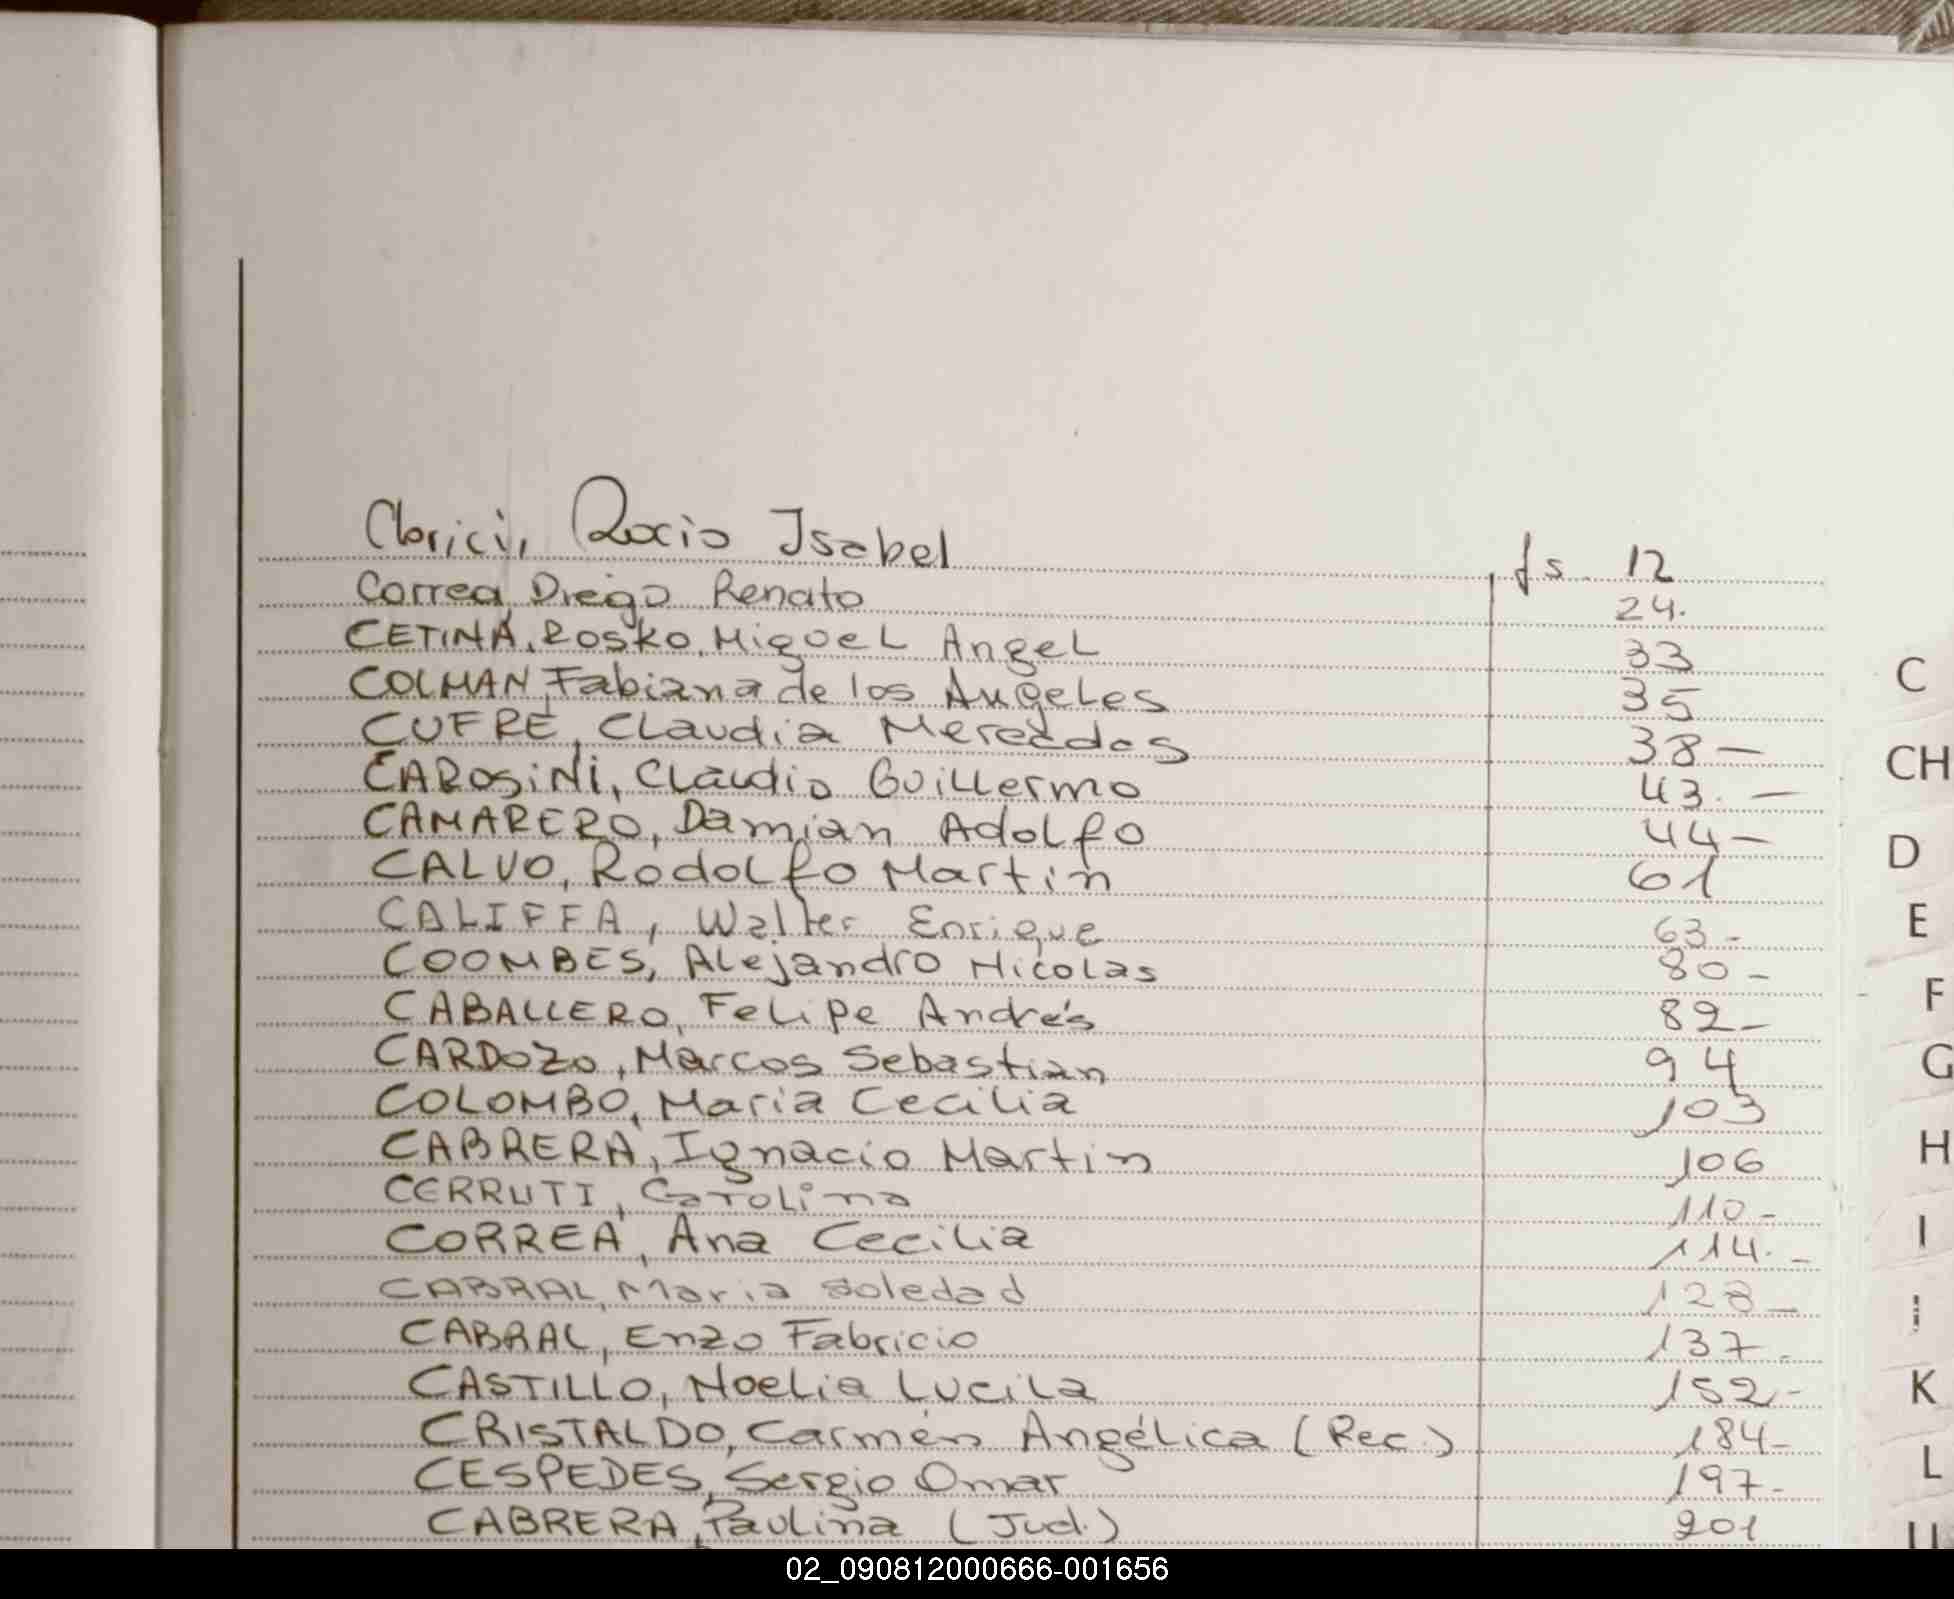 Clorici, Rocio Isabel fs. 12
Correa, Diego Renato 24.
CETINA, Rosko, Miguel Angel 33
COLMAN, Fabiana de los Angeles 35
CUFRE, Claudia Mercedes 38 —
CAROSINI, Claudio Guillermo 43. —
CAMARERO, Damian Adolfo 44 —
CALVO, Rodolfo Martin 61
CALIFFA, Walter Enrique 63 -
COOMBES, Alejandro Nicolas 80 -
CABALLERO, Felipe Andrés 82 -
CARDOZO, Marcos Sebastian 94
COLOMBO, Maria Cecilia 103
CABRERA, Ignacio Martin 106
CERRUTI, Carolina 110 -
CORREA, Ana Cecilia 114. -
CABRAL, Maria Soledad 128 -
CABRAL, Enzo Fabricio 137 -
CASTILLO, Noelia Lucila 152 -
CRISTALDO, Carmen Angélica (Rec.) 184 -
CESPEDES, Sergio Omar 197 -
CABRERA, Paulina (Jud.) 201
C
CH
D
E
F
G
H
I
K
L
02_090812000666-001656